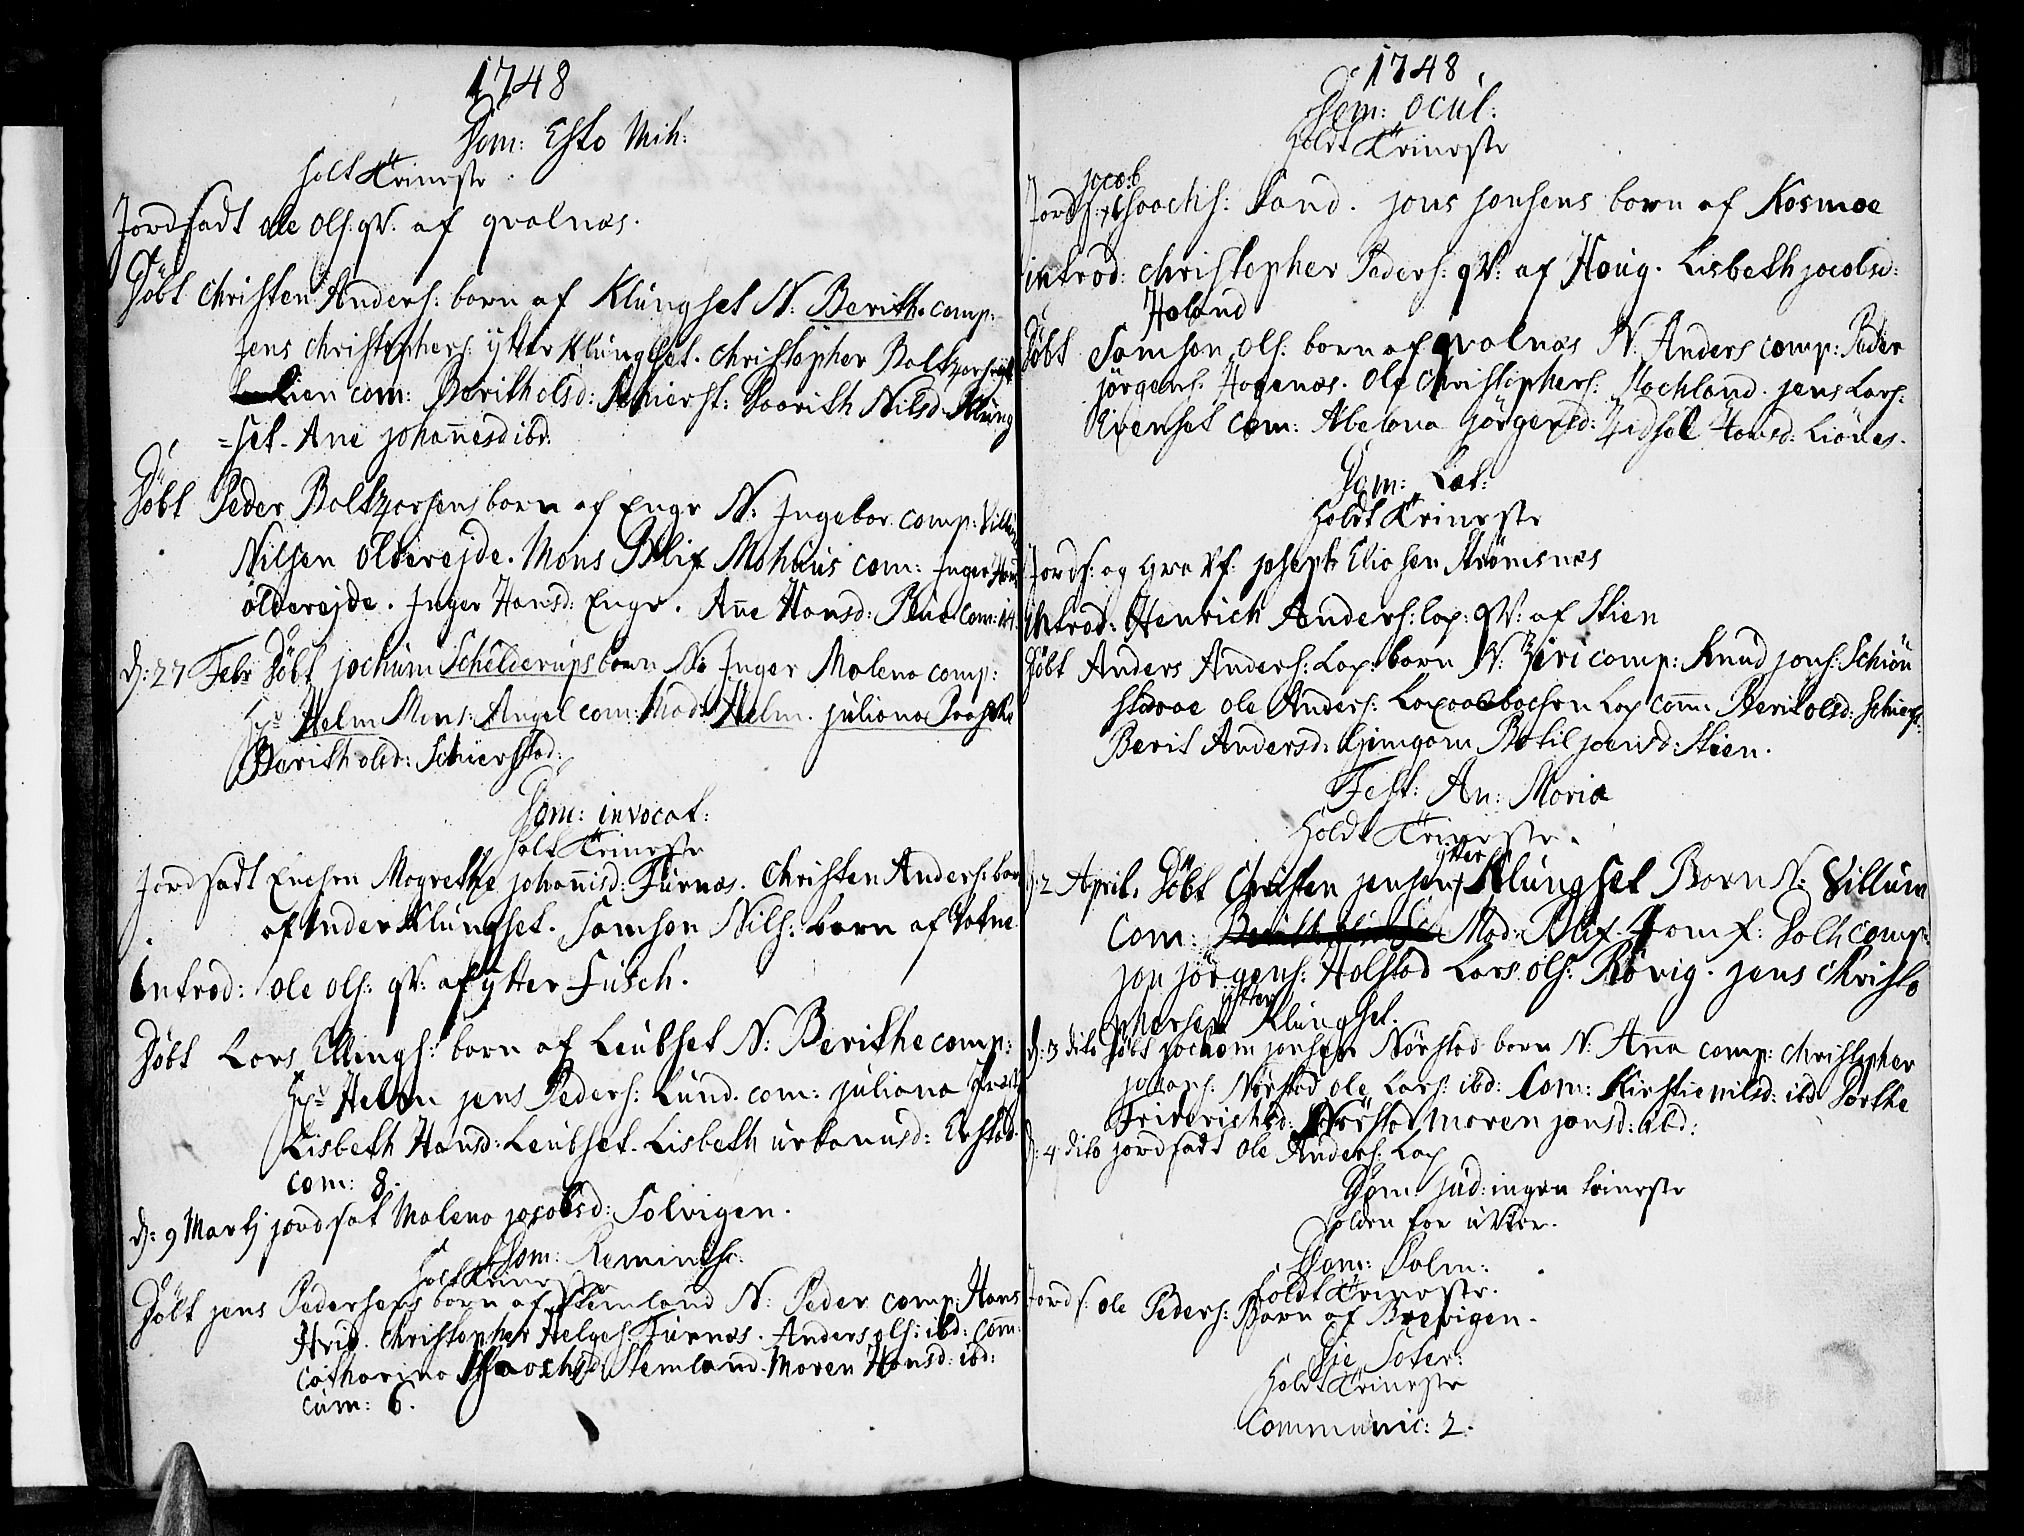 1748
Dom: Esto Mih:
holt Tieniste.
Jordfadt ole ols: qv: af qvalnæs.
Döbt Christen Anders: barn af Klungset N: Berith. comp:
Jens Christophers: ytter Klungset. Christopher Baltzersen
lien com: Berith olsd: Schierst: Baarith Nilsd: Klung
=set. Ane johannesd ibd:
Döbt Peder Baltzersens barn af Enge N: Ingebor comp: Villum
Nilsen olderejde. Mons Blix Mohuus com: Inger
olderejde. Inger Hansd: Enge. Ane Hansd: com: 14.
d: 27 Febr Döbt jochum Schelderups barn N: Inger Malena comp:
Hr Helm Mons: Angel com: Mad: Helm. juliana
Berith olsd: Schierstad:
Dom: invocat:
holt Tieniste
Jordfadt Enchen Magrethe johannisd: Furnæs. Christen Anders: barn
af Inder Klungset. Samson Nils: barn af Vatne
Introd: ole ols: qv: af ytter Fusch.
Döbt Lars Ellings: barn af Leubset N: Berithe comp:
Hr Helm jens Peders: Lund. com: juliana
Lisbeth Hansd: Leubset. Lisbeth urbanusd: Erstad.
com: 8.
d: 9 Martj jordfat Malena jacobsd: Solvigen.
Dom: Reminisc:
holt Tieniste
Döbt jens Pedersens barn af Stemland N: Peder comp: Hans
Hvid. Christopher Helges: Furnæs. Anders ols: ibd: com:
Catharina Stemland. Maren Hansd: ibd:
cum: 6.
1748
Dom: ocul:
holdt Tieniste
jacob
Jordf: Sand. jons jonsens barn af Kosmoe
introd: Christopher Peders: qv: af Haug. Lisbeth jacobsd:
Haland
Döbt Samson ols: barn af qvalnæs N: Anders comp: Peder
jörgens: Hagenæs. Ole Christophers: Hochland. jens Lars:
Evenset com: Abelona jörgensd: Zidsel Hansd: Liönes.
Dom: Læt:
holdt Tieniste
Jordf: og joseph Eliasen Strömsnæs
introd: Henrich Anders: lap: qv: af Stien
Döbt Anders Anders: Lap: barn N: Ziri comp: Knud jons: Schiön
staae ole Anders: Lap com: Berit olsd: Schierst:
Berit Andersd: Gjemgam Botil joensd: Stien.
Fest: An: Mariæ
holdt Tieniste.
ytter
d: 2 April. Döbt Christen jensen Klungset Barn N: Villum
Com: Mad: Blix. Jomf: Dolh comp:
jon jörgens: Halstad Lars ols: Rövig. jens Christo
ytter
phersen Klungset.
d: 3 dito Döbt jochom jonsen Nörstad barn N: Anna comp: Christopher
Nörstad ole Lars: ibd: Com: Kirstie nilsd: ibd Dorthe
Friderichsd: Nörstad Maren jonsd: ibd:
d: 4 dito jordfadt ole Anders: Lap
Dom: jud: ingen tieniste
holden for uveir.
Dom: Palm:
holdt Tieniste.
Jordf: ole Peders: Barn af Brevigen.
Die Sater:
holdt Tieniste
Communic: 2.